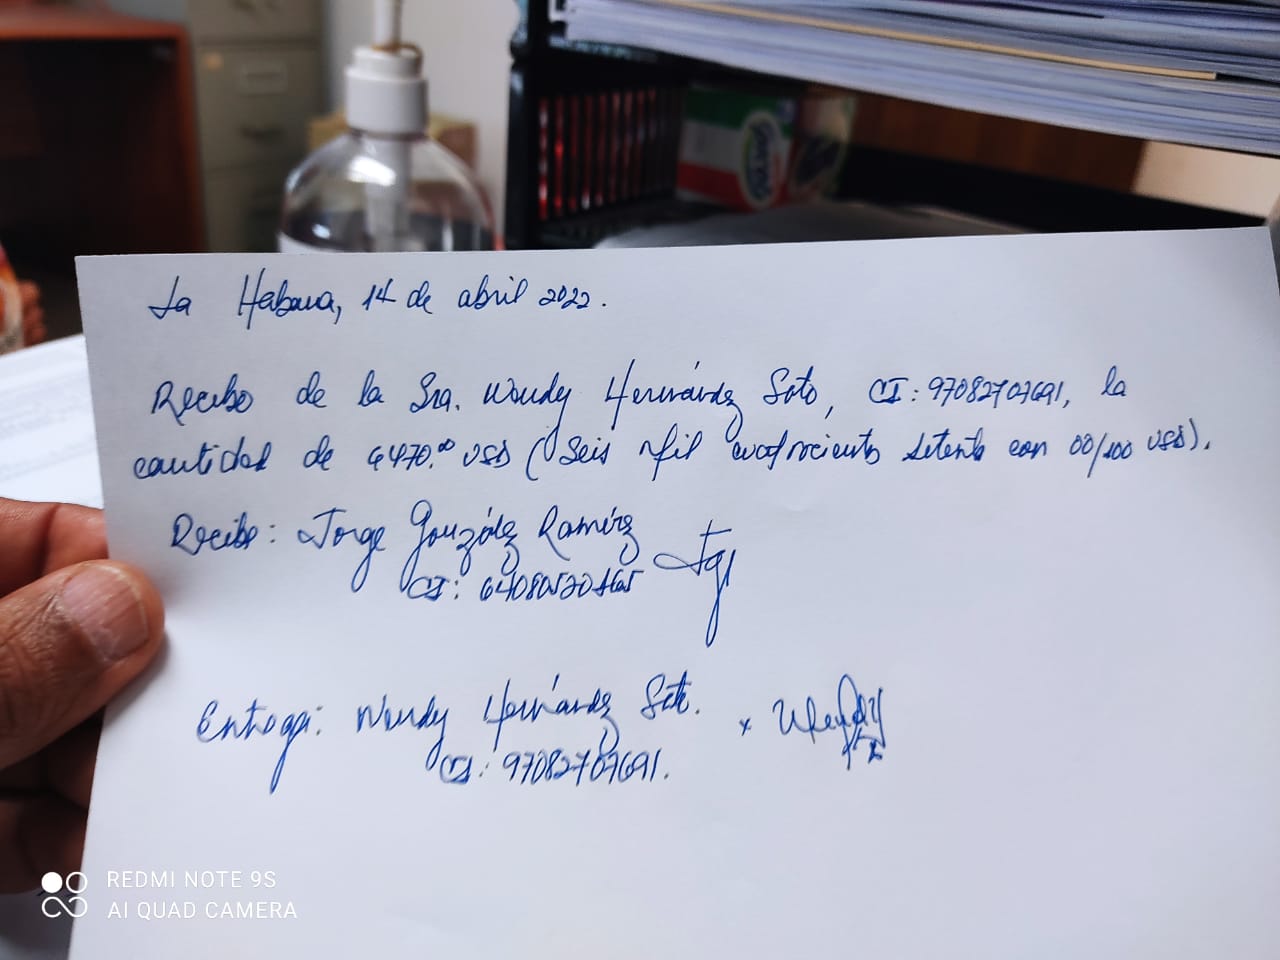 La Habana, 14 de abril 2022.
Recibo de la Sra. Wendy Hernández Soto, CI: 97082707691, la
cantidad de 6470.00 USD (Seis mil cuatrocientos setenta con 00/100 USD).
Recibe: Jorge González Ramírez
CI: 64080520865
Entrega: Wendy Hernández Soto. x Wendy
CI: 97082707691.
REDMI NOTE 9S
AI QUAD CAMERA